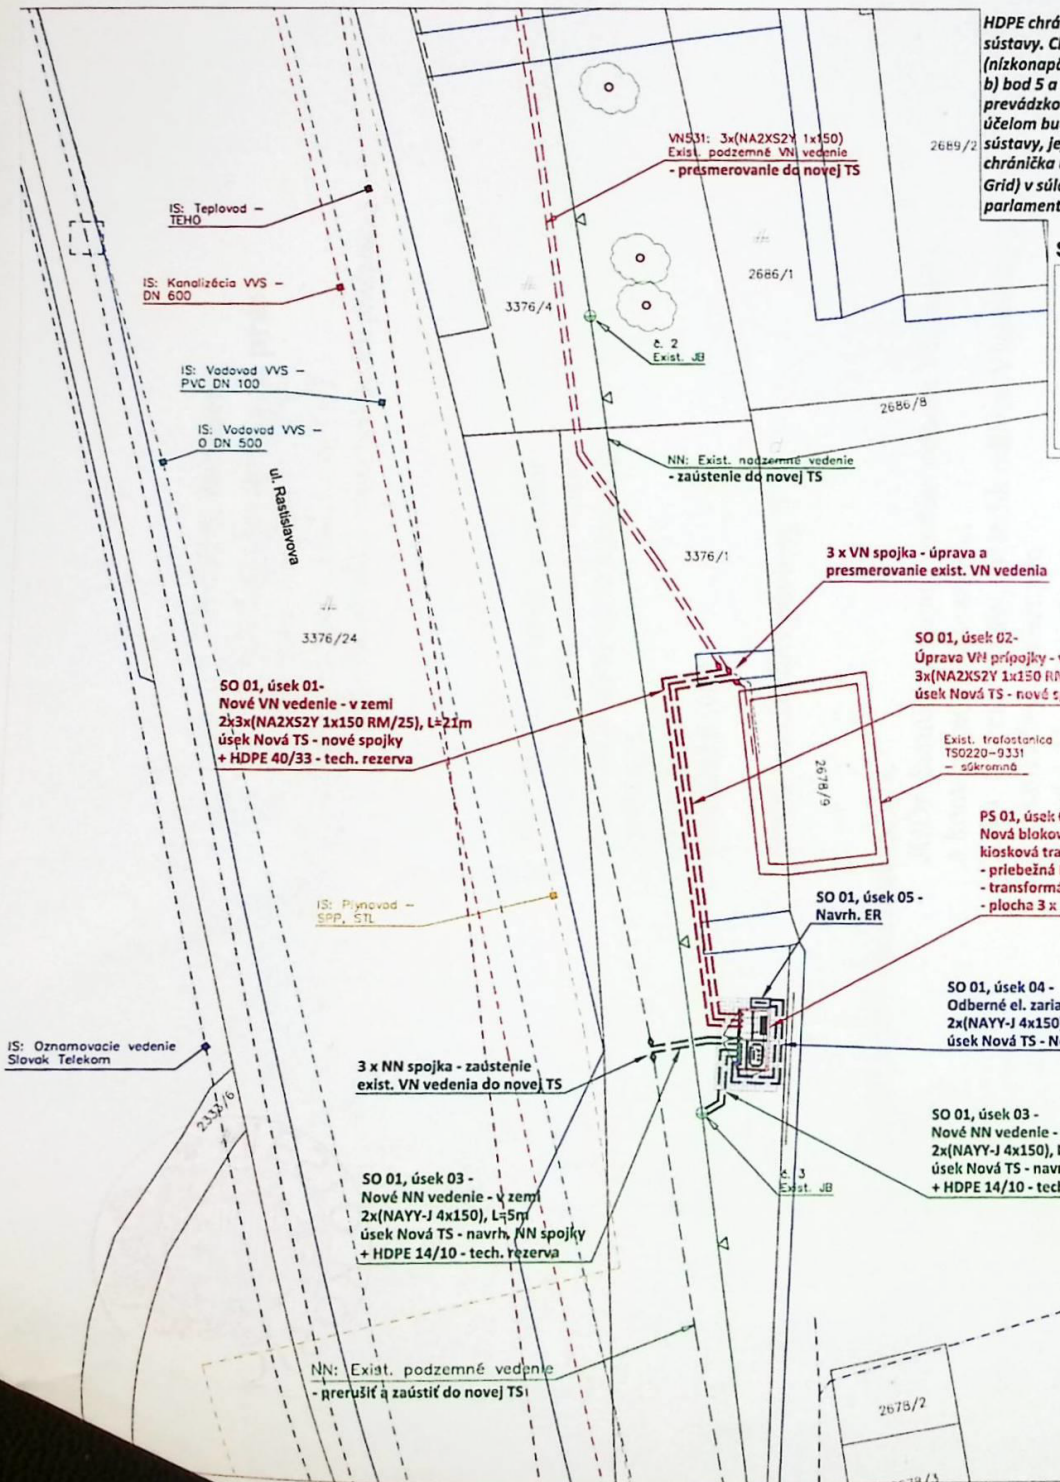 HDPE chrá
sústavy. C
(nízkonapä
b) bod 5 a
prevádzko
účelom bu
sústavy, je
chránička
Grid) v súl
parlament
2689/2
VN531: 3x(NA2XS2Y 1x150)
Exist. podzemné VN vedenie
- presmerovanie do novej TS
IS: Teplovod -
TEHO
IS: Kanalizácia VVS -
DN 600
3376/4
2686/1
č. 2
Exist. JB
IS: Vodovod VVS -
PVC DN 100
2686/8
IS: Vodovod VVS -
O DN 500
NN: Exist. nadzemné vedenie
- zaústenie do novej TS
ul. Rastislavova
3376/1
3 x VN spojka - úprava a
presmerovanie exist. VN vedenia
3376/24
SO 01, úsek 02-
Úprava VN prípojky -
3x(NA2XS2Y 1x150 RM
úsek Nová TS - nové s
SO 01, úsek 01-
Nové VN vedenie - v zemi
2x3x(NA2XS2Y 1x150 RM/25), L=21m
úsek Nová TS - nové spojky
+ HDPE 40/33 - tech. rezerva
Exist. trafostanica
TS0220-9331
- súkromná
2678/9
PS 01, úsek
Nová bloko
kiosková tra
- priebežná
- transformá
- plocha 3 x
IS: Plynovod -
SPP, STL
SO 01, úsek 05 -
Navrh. ER
SO 01, úsek 04 -
Odberné el. zaria
2x(NAYY-J 4x150
úsek Nová TS - N
IS: Oznamovacie vedenie
Slovak Telekom
3 x NN spojka - zaústenie
exist. VN vedenia do novej TS
2333/6
SO 01, úsek 03 -
Nové NN vedenie -
2x(NAYY-J 4x150),
úsek Nová TS - navr
+ HDPE 14/10 - tech
č. 3
Exist. JB
SO 01, úsek 03 -
Nové NN vedenie - v zemi
2x(NAYY-J 4x150), L=5m
úsek Nová TS - navrh. NN spojky
+ HDPE 14/10 - tech. rezerva
NN: Exist. podzemné vedenie
- prerušiť a zaústiť do novej TS
2678/2